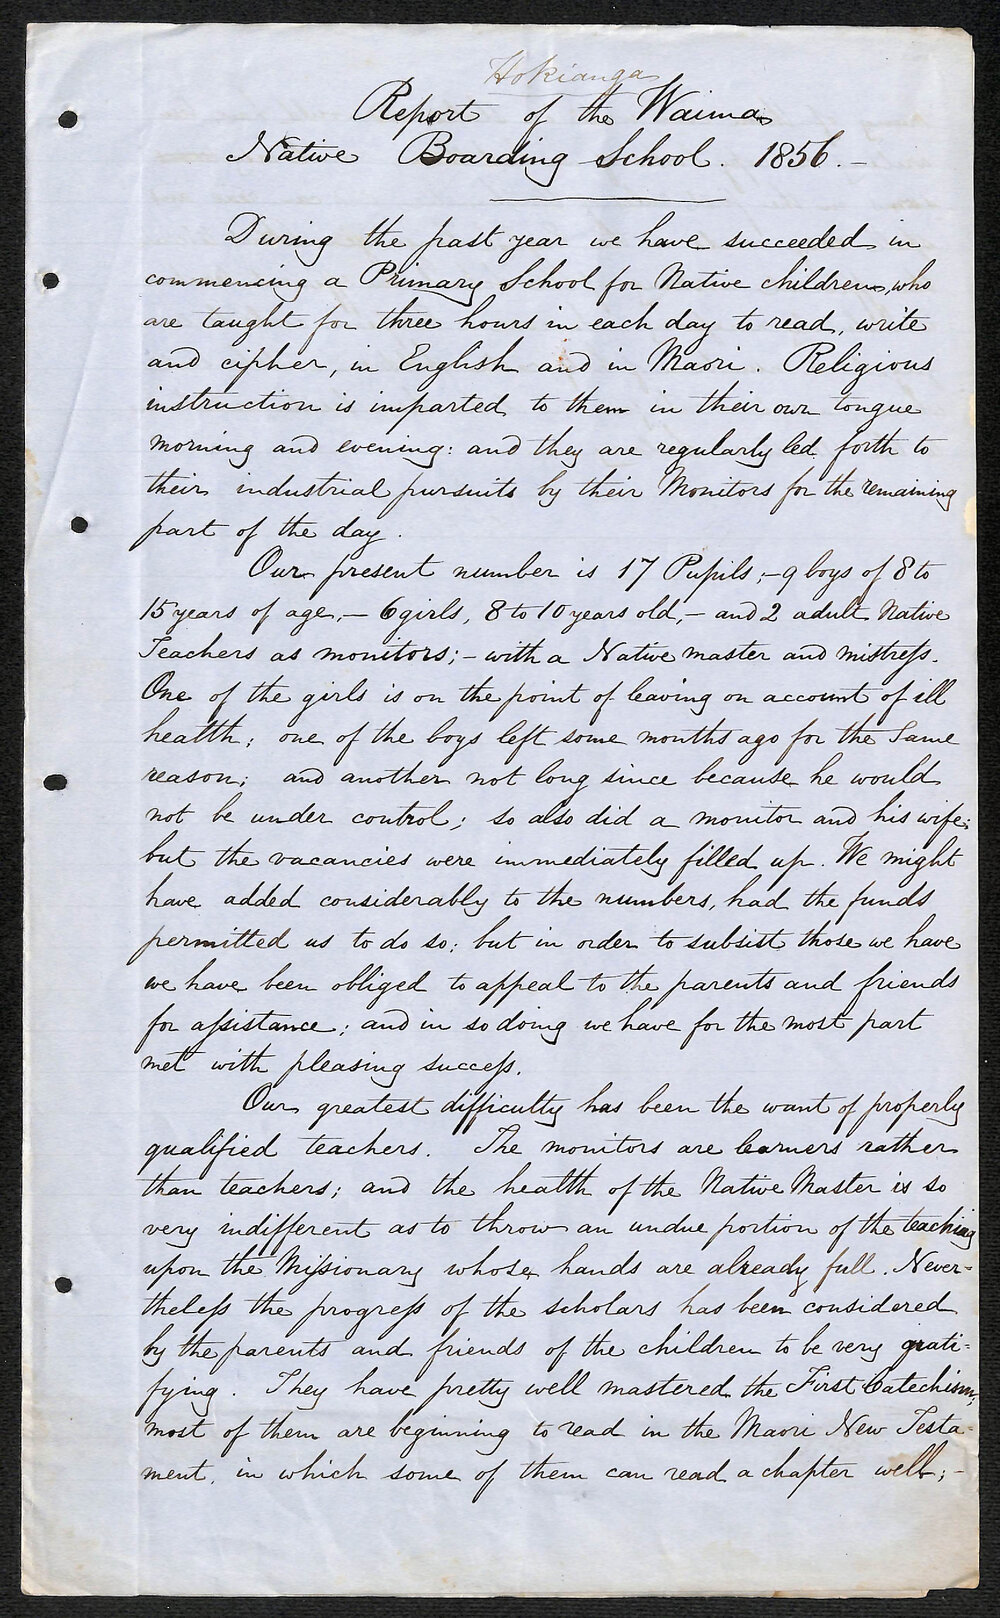 Hokianga
Report of the Waima
Native Boarding School. 1856. -
During the past year we have succeeded in
commencing a Primary School for Native children, who
are taught for three hours in each day to read, write
and cipher, in English and in Maori. Religious
instruction is imparted to them in their own tongue
morning and evening: and they are regularly led forth to
their industrial pursuits by their Monitors for the remaining
part of the day.
Our present number is 17 Pupils; - 9 boys of 8 to
15 years of age, - 6 girls, 8 to 10 years old, - and 2 adult Native
Teachers as monitors; - with a Native master and mistress.
One of the girls is on the point of leaving on account of ill
health; one of the boys left some months ago for the same
reason; and another not long since because he would
not be under control; so also did a monitor and his wife;
but the vacancies were immediately filled up. We might
have added considerably to the numbers, had the funds
permitted us to do so; but in order to subsist those we have
we have been obliged to appeal to the parents and friends
for assistance; and in so doing we have for the most part
met with pleasing success.
Our greatest difficulty has been the want of properly
qualified teachers. The monitors are learners rather
than teachers; and the health of the Native Master is so
very indifferent as to throw an undue portion of the teaching
upon the Missionary whose hands are already full. Never=
theless the progress of the scholars has been considered
by the parents and friends of the children to be very grati=
fying. They have pretty well mastered the First Catechism;
most of them are beginning to read in the Maori New Testa=
ment, in which some of them can read a chapter well; -